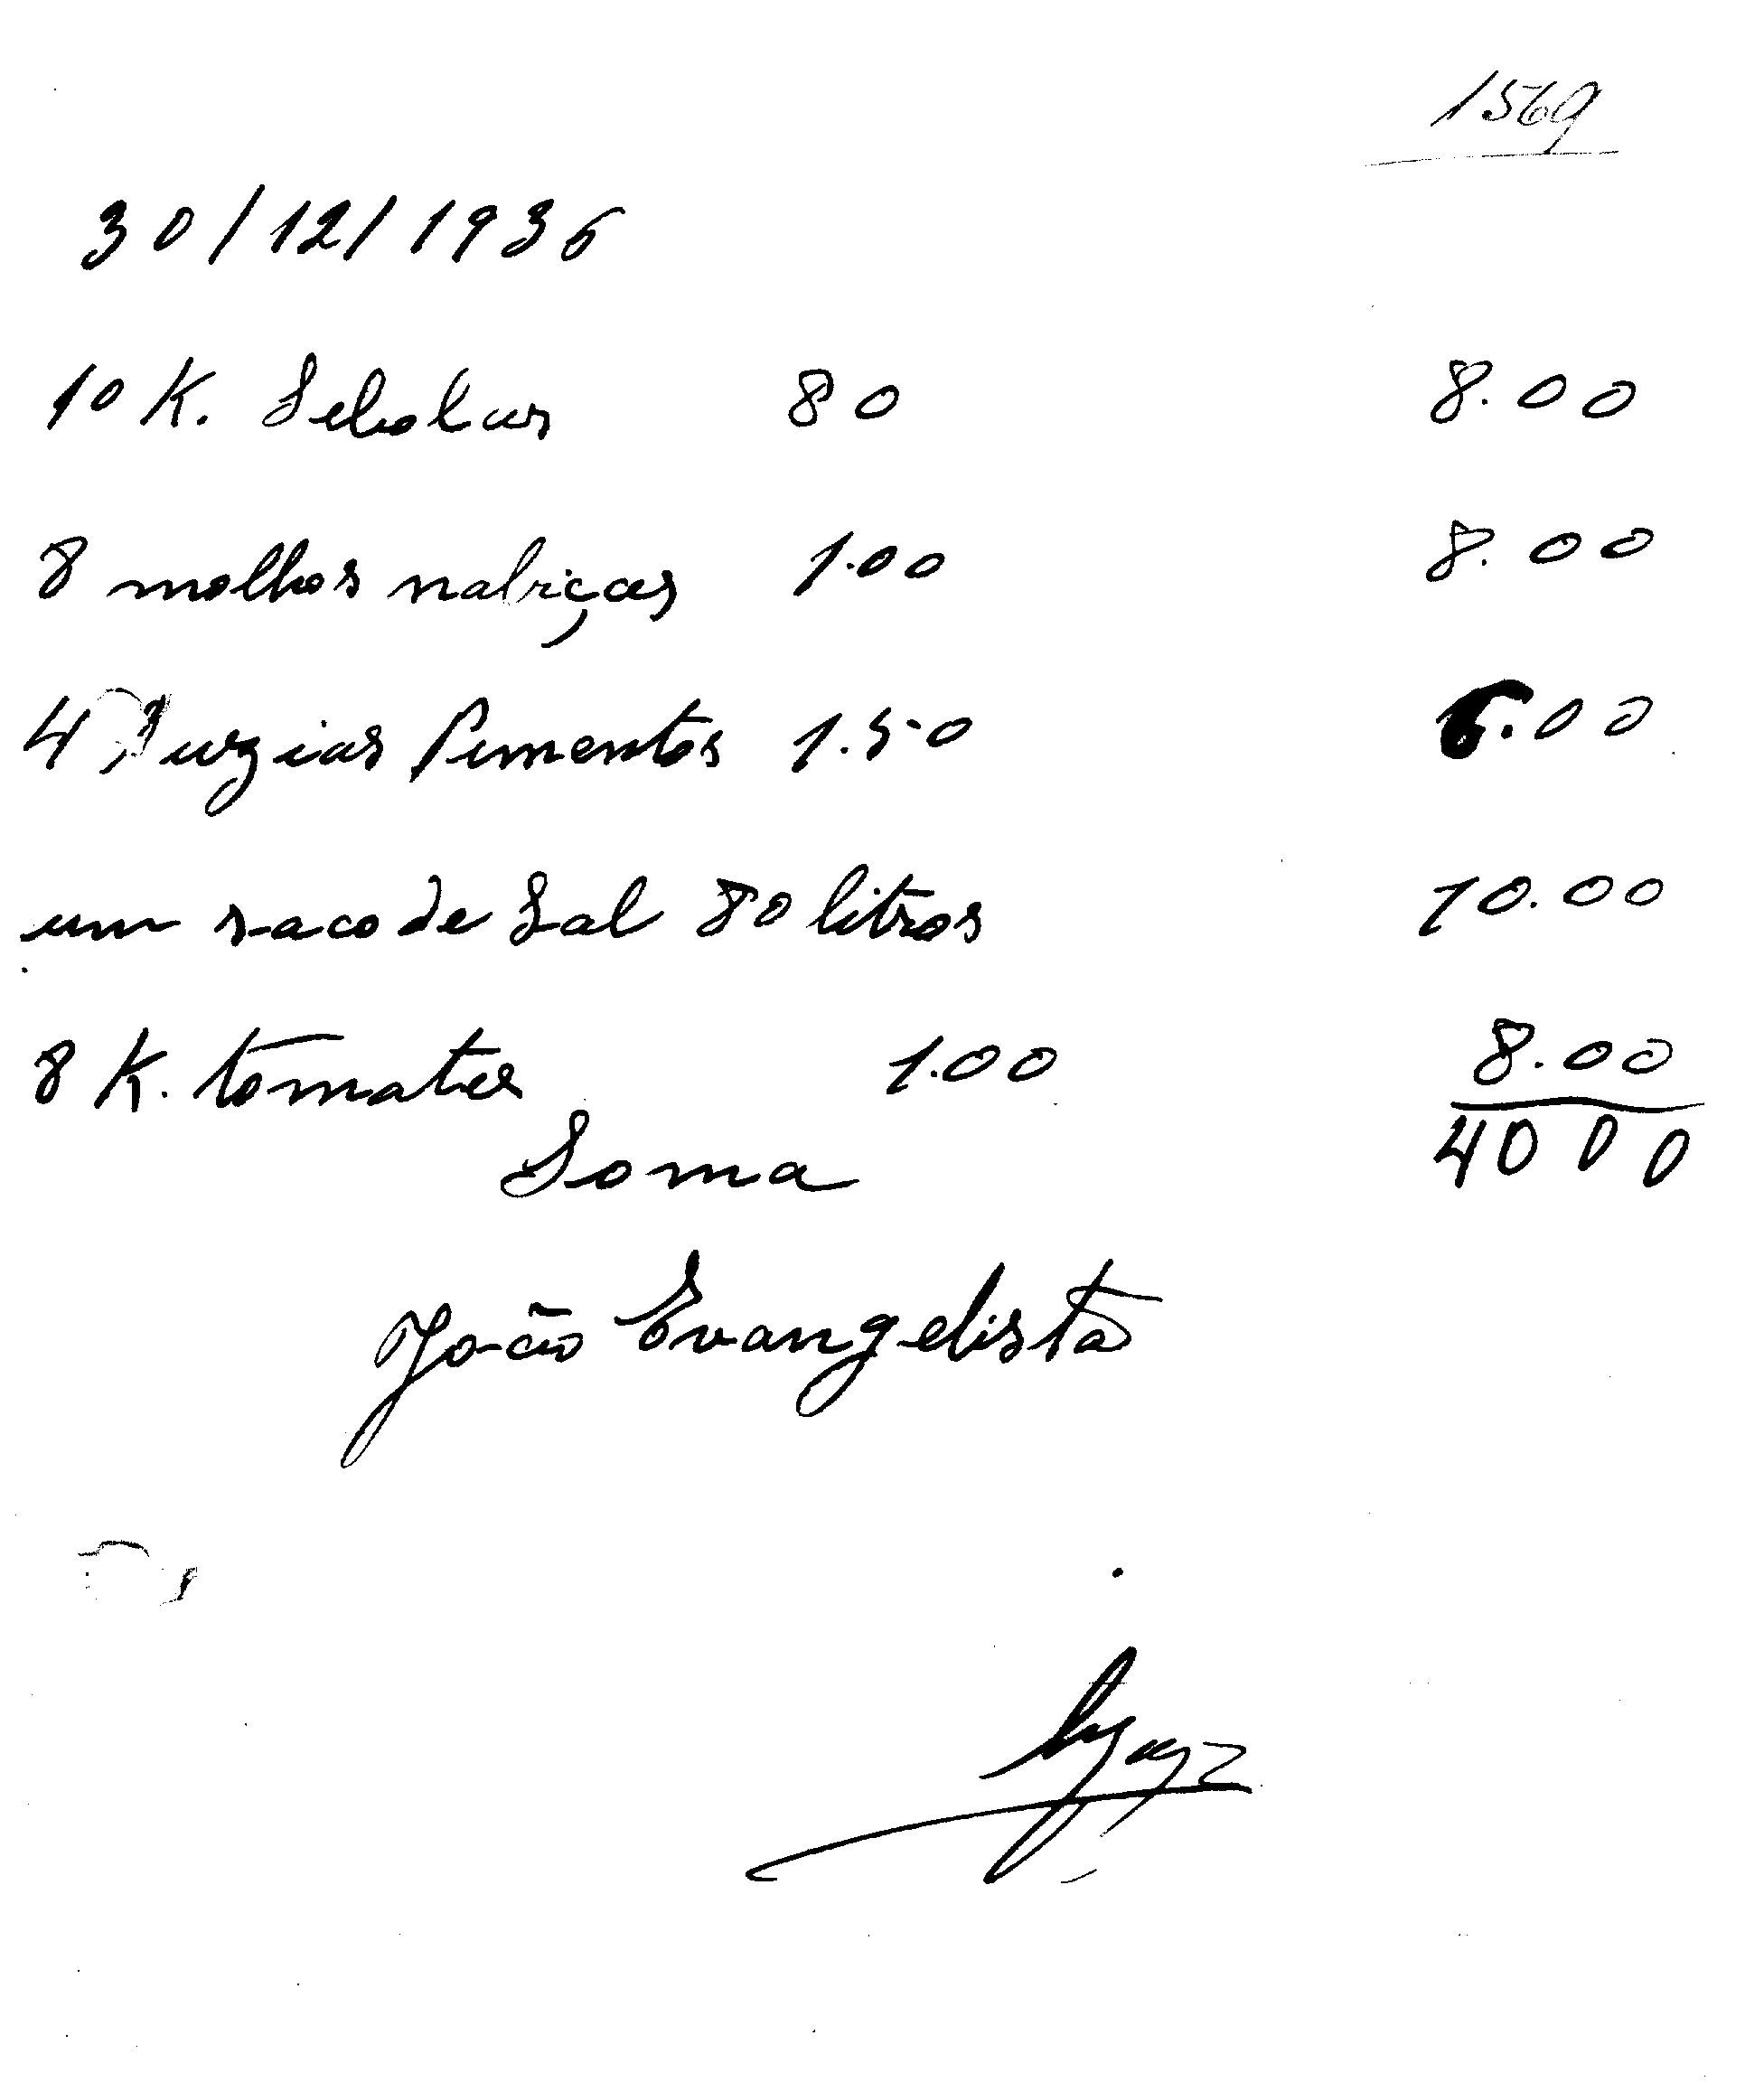 1569
30/12/1936
10 K. Sebolas 80 8.00
8 molhos nabiças 1.00 8.00
4 Duzias Pimentos 1.50 6.00
um saco de Sal 80 litros 10.00
8 K. tomates 1.00 8.00
4000
Soma
João Evangelista